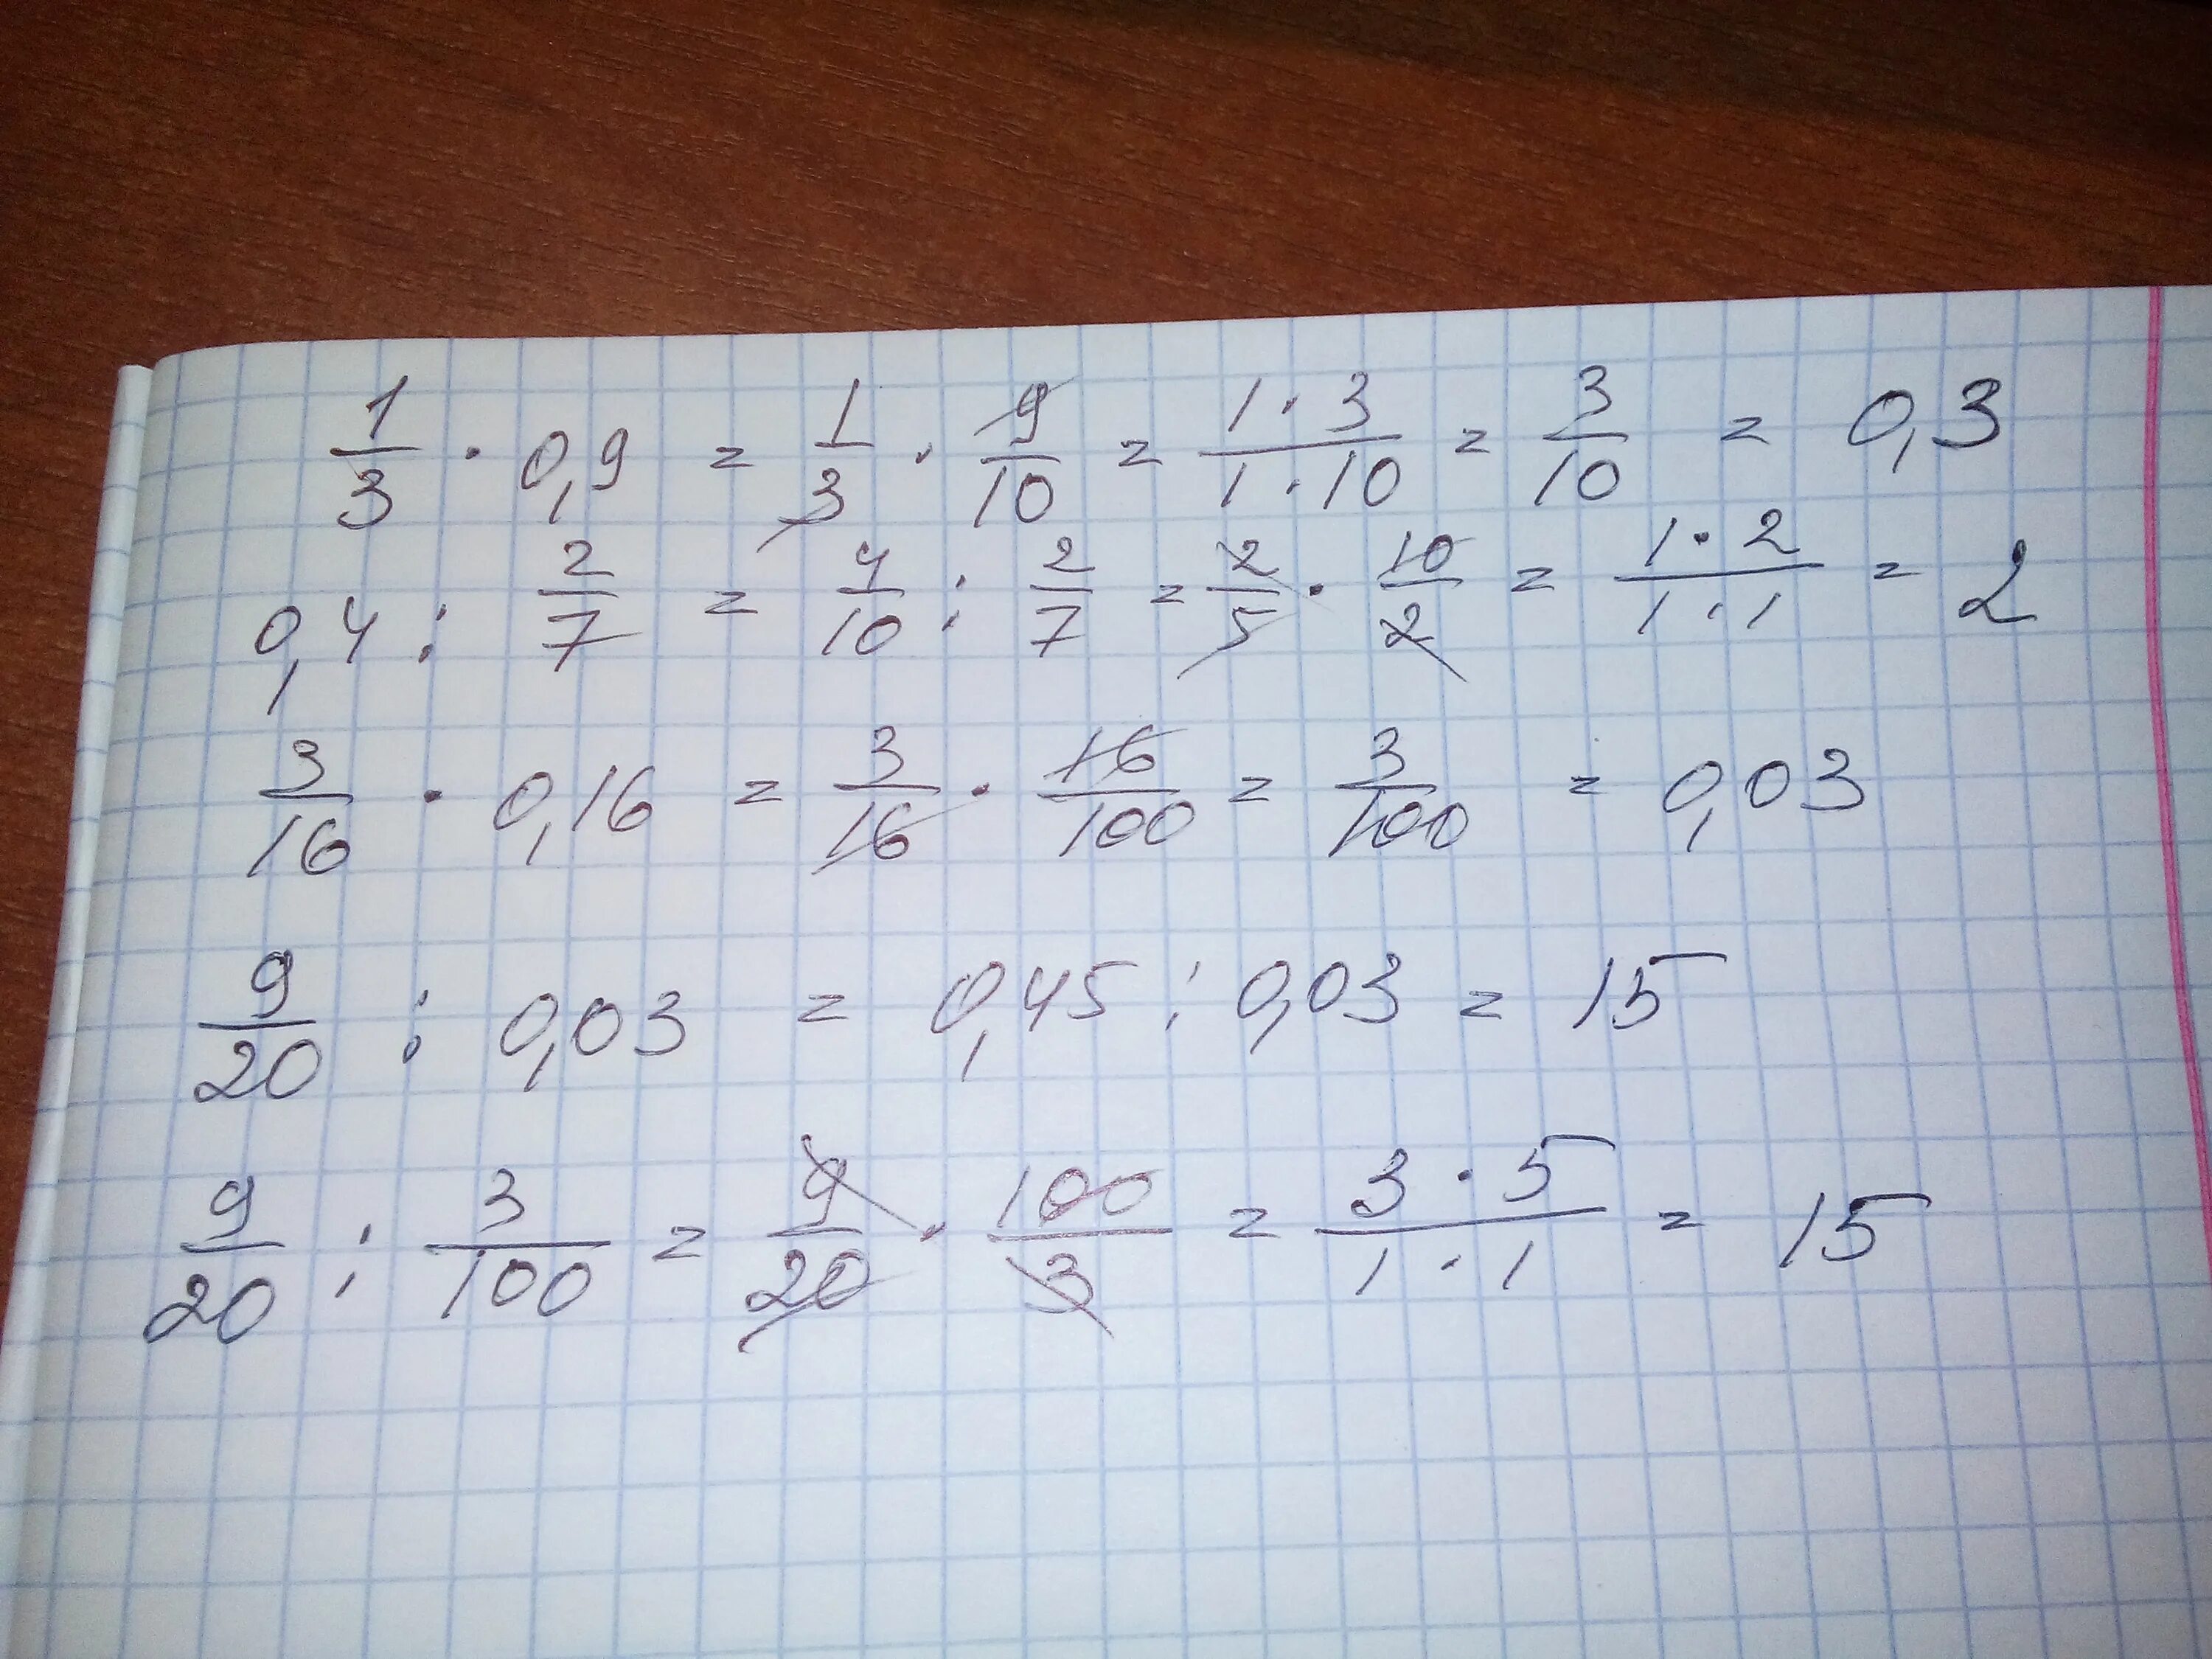 1/3 · 0,9 = 1/3 · 9/10 = 1·3/1·10 = 3/10 = 0,3
0,4 : 2/7 = 4/10 : 2/7 = 2/5 · 10/2 = 1·2/1·1 = 2
3/16 · 0,16 = 3/16 · 16/100 = 3/100 = 0,03
9/20 : 0,03 = 0,45 : 0,03 = 15
9/20 : 3/100 = 9/20 · 100/3 = 3·5/1·1 = 15